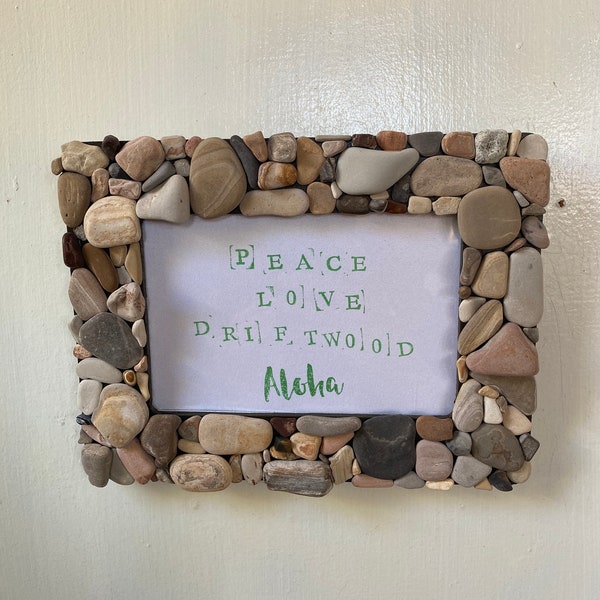 PEACE
LOVE
DRIFTWOOD
Aloha